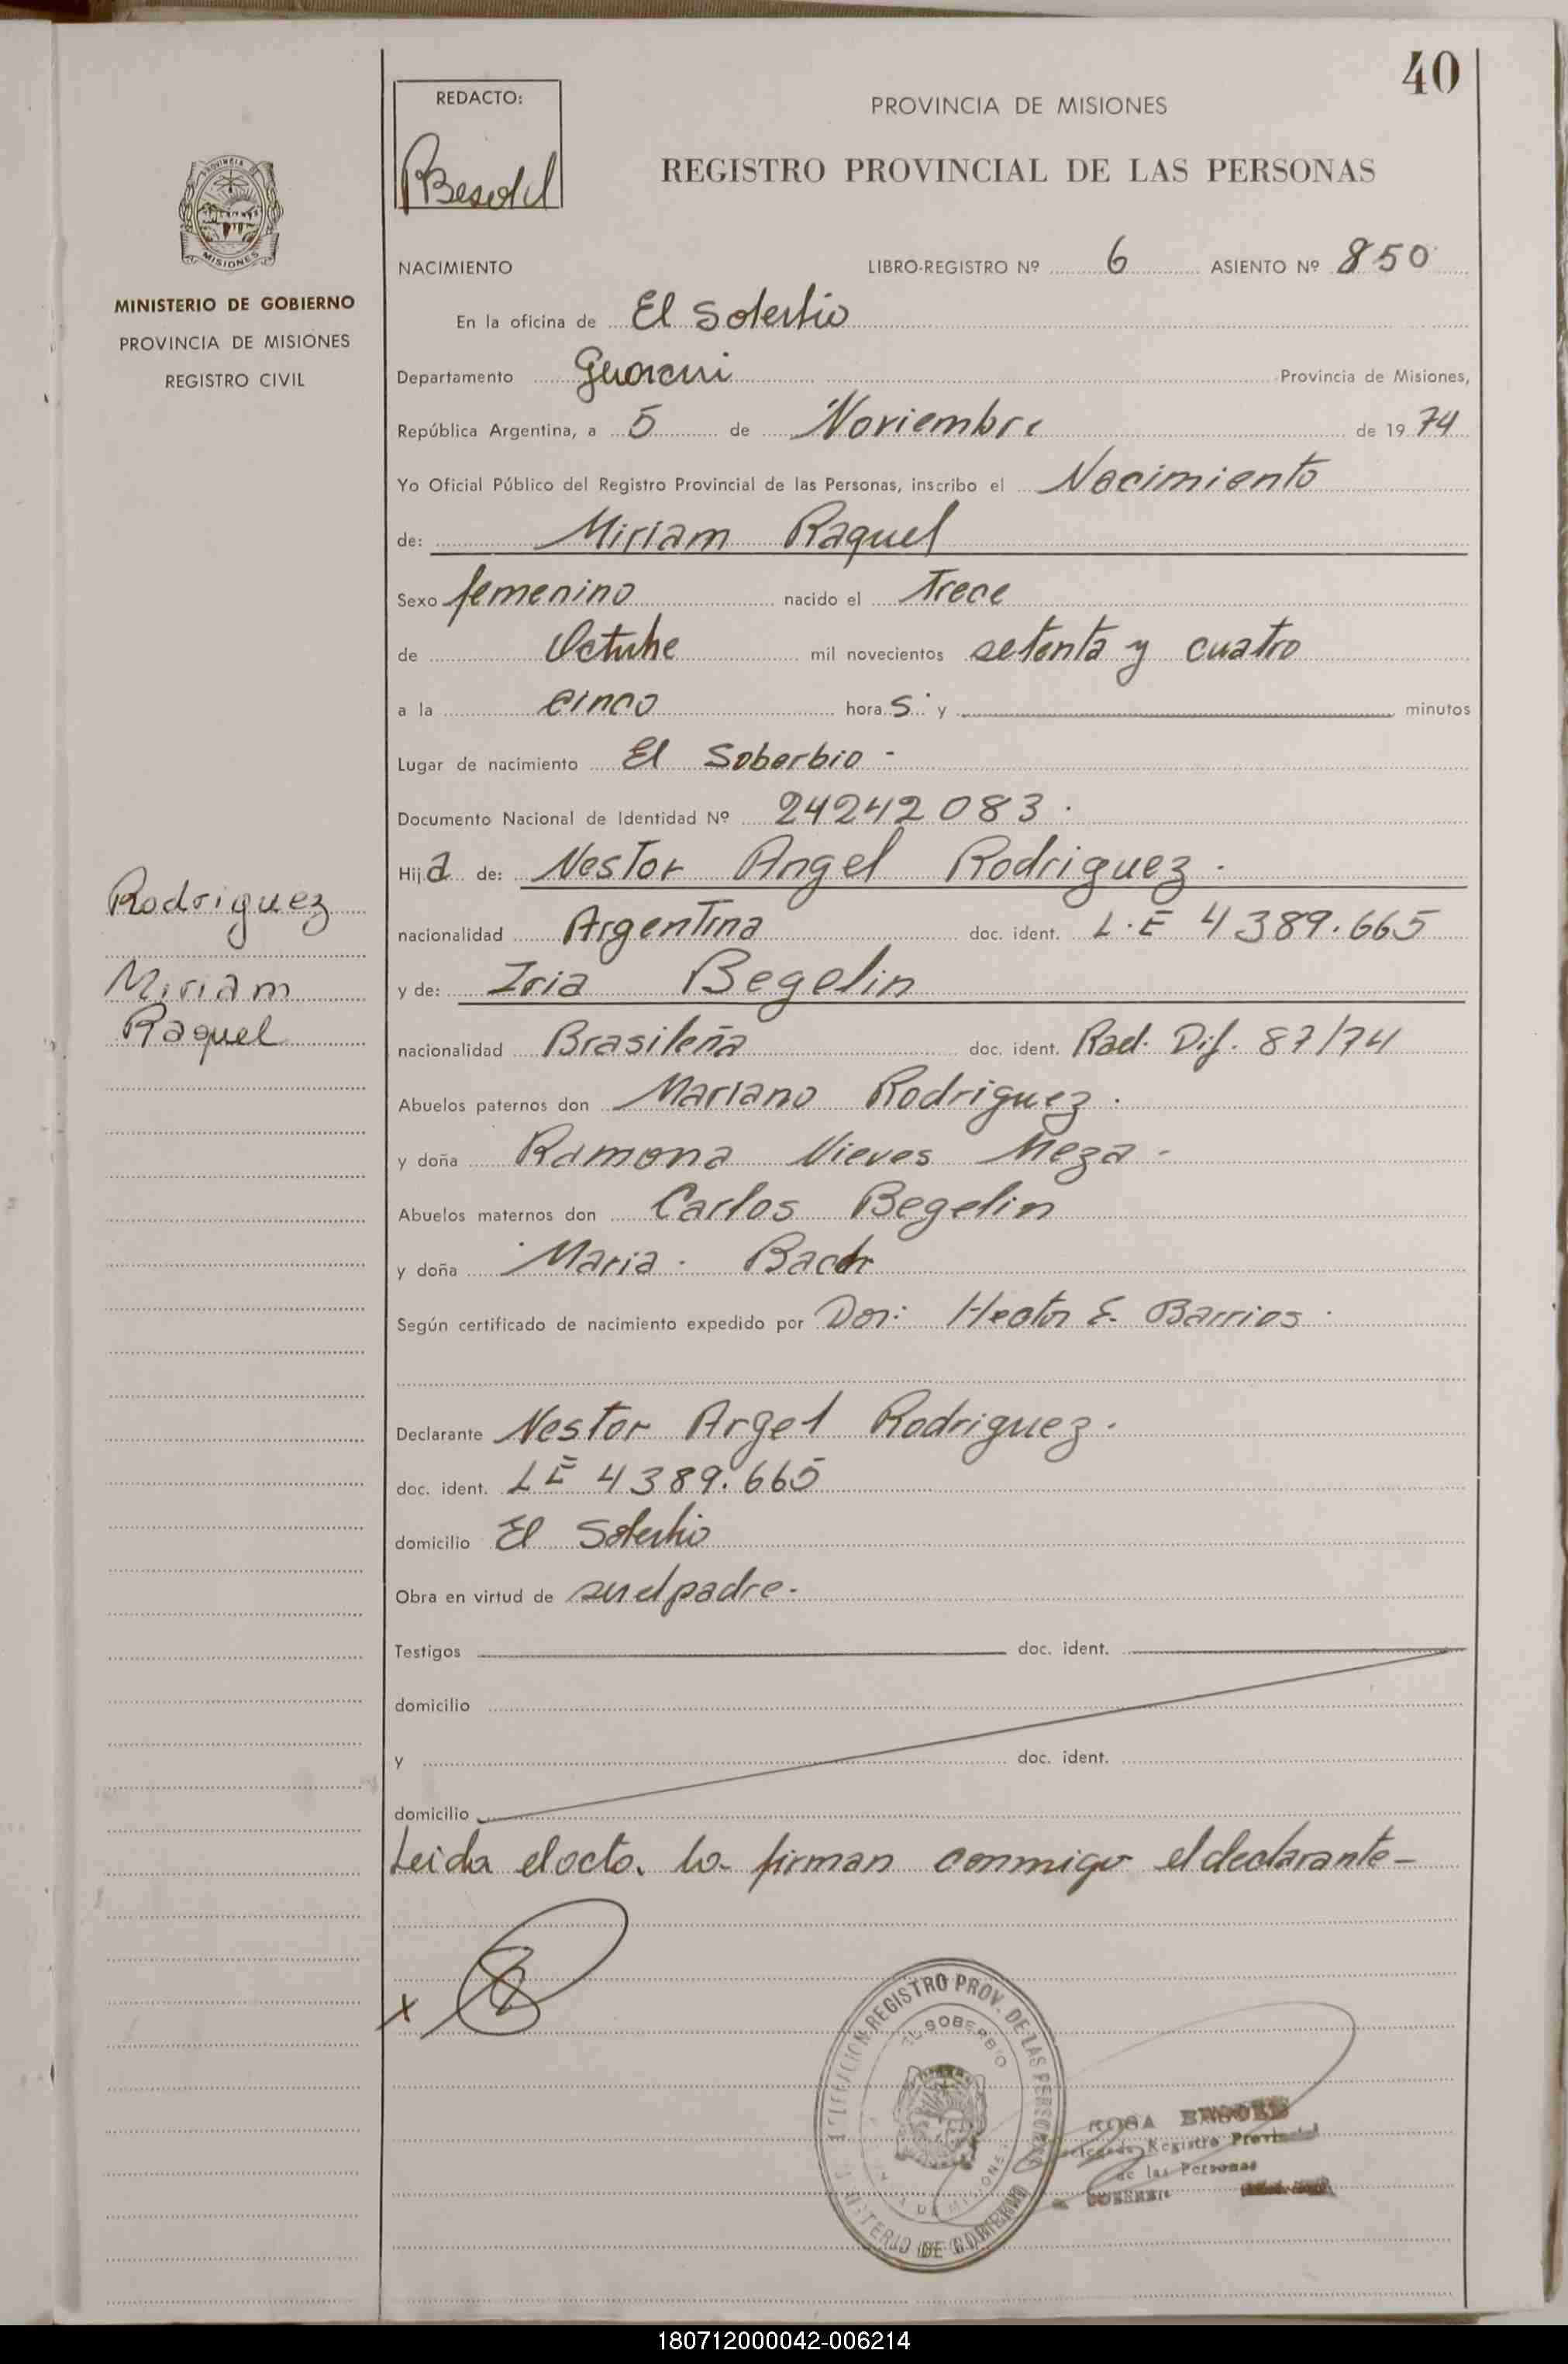 40
REDACTO:
PROVINCIA DE MISIONES
REGISTRO PROVINCIAL DE LAS PERSONAS
PROVINCIA
MISIONES
MINISTERIO DE GOBIERNO
PROVINCIA DE MISIONES
REGISTRO CIVIL
NACIMIENTO LIBRO-REGISTRO Nº 6 ASIENTO Nº 850
En la oficina de El Soberbio
Departamento Guarani Provincia de Misiones,
República Argentina, a 5 de Noviembre de 1974
Yo Oficial Público del Registro Provincial de las Personas, inscribo el Nacimiento
de: Miriam Raquel
Sexo femenino nacido el Trece
de Octubre mil novecientos setenta y cuatro
a la cinco horas y minutos
Lugar de nacimiento El Soberbio -
Documento Nacional de Identidad Nº 24242083.
Hija de: Nestor Angel Rodriguez.
nacionalidad Argentina doc. ident. L.E 4389.665
y de: Iria Begelin
nacionalidad Brasileña doc. ident. Rad. Dif. 87/74
Abuelos paternos don Mariano Rodriguez.
y doña Ramona Nieves Meza -
Abuelos maternos don Carlos Begelin
y doña Maria
Según certificado de nacimiento expedido por Don: Hector E. Barrios.
Declarante Nestor Argel Rodriguez.
doc. ident. LE 4389.665
domicilio El Soberbio
Obra en virtud de ser el padre.
Testigos doc. ident.
domicilio
y doc. ident.
domicilio
Leida el acta. la firman conmigo el declarante-
x
Rodriguez
Miriam
Raquel
DELEGACION REGISTRO PROV. DE LAS PERSONAS
EL SOBERBIO
MINISTERIO DE GOBIERNO
ROSA
Registro Provincial
de las Personas
180712000042-006214